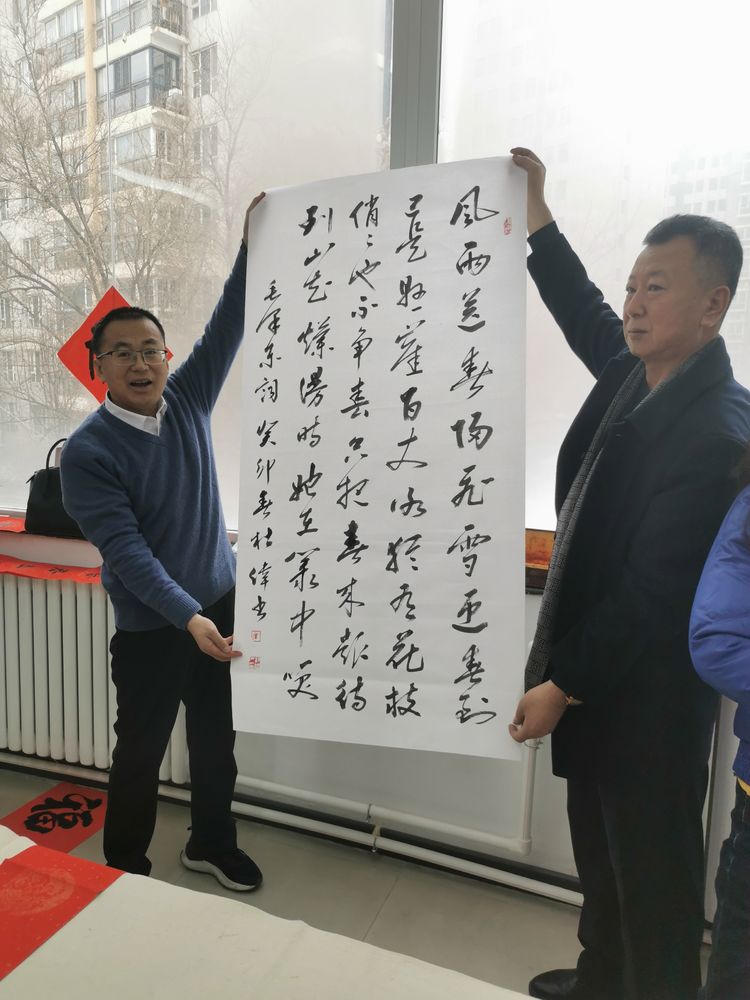 风雨送春归飞雪迎春到
已是悬崖百丈冰犹有花枝
俏〻也不争春只把春来报待
到山花烂漫时她在丛中咲
毛泽东词癸卯春伟书
福